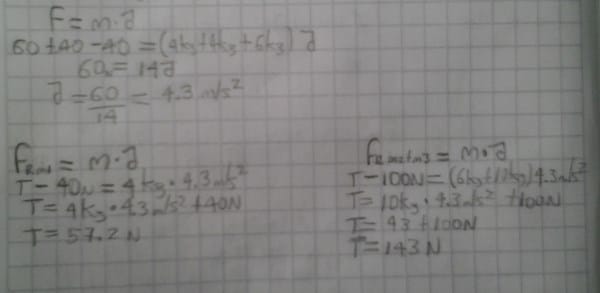 F = m·a
60+40-40 = (4kg+4kg+6kg) a
60N = 14a
a = 60/14 = 4.3 m/s²
T - 40N = 4kg·4.3m/s²
T = 4kg·4.3m/s² + 40N
T = 57.2N
T - 100N = (6kg+4kg)4.3m/s²
T = 10kg·4.3m/s² + 100N
T = 43 + 100N
T = 143N